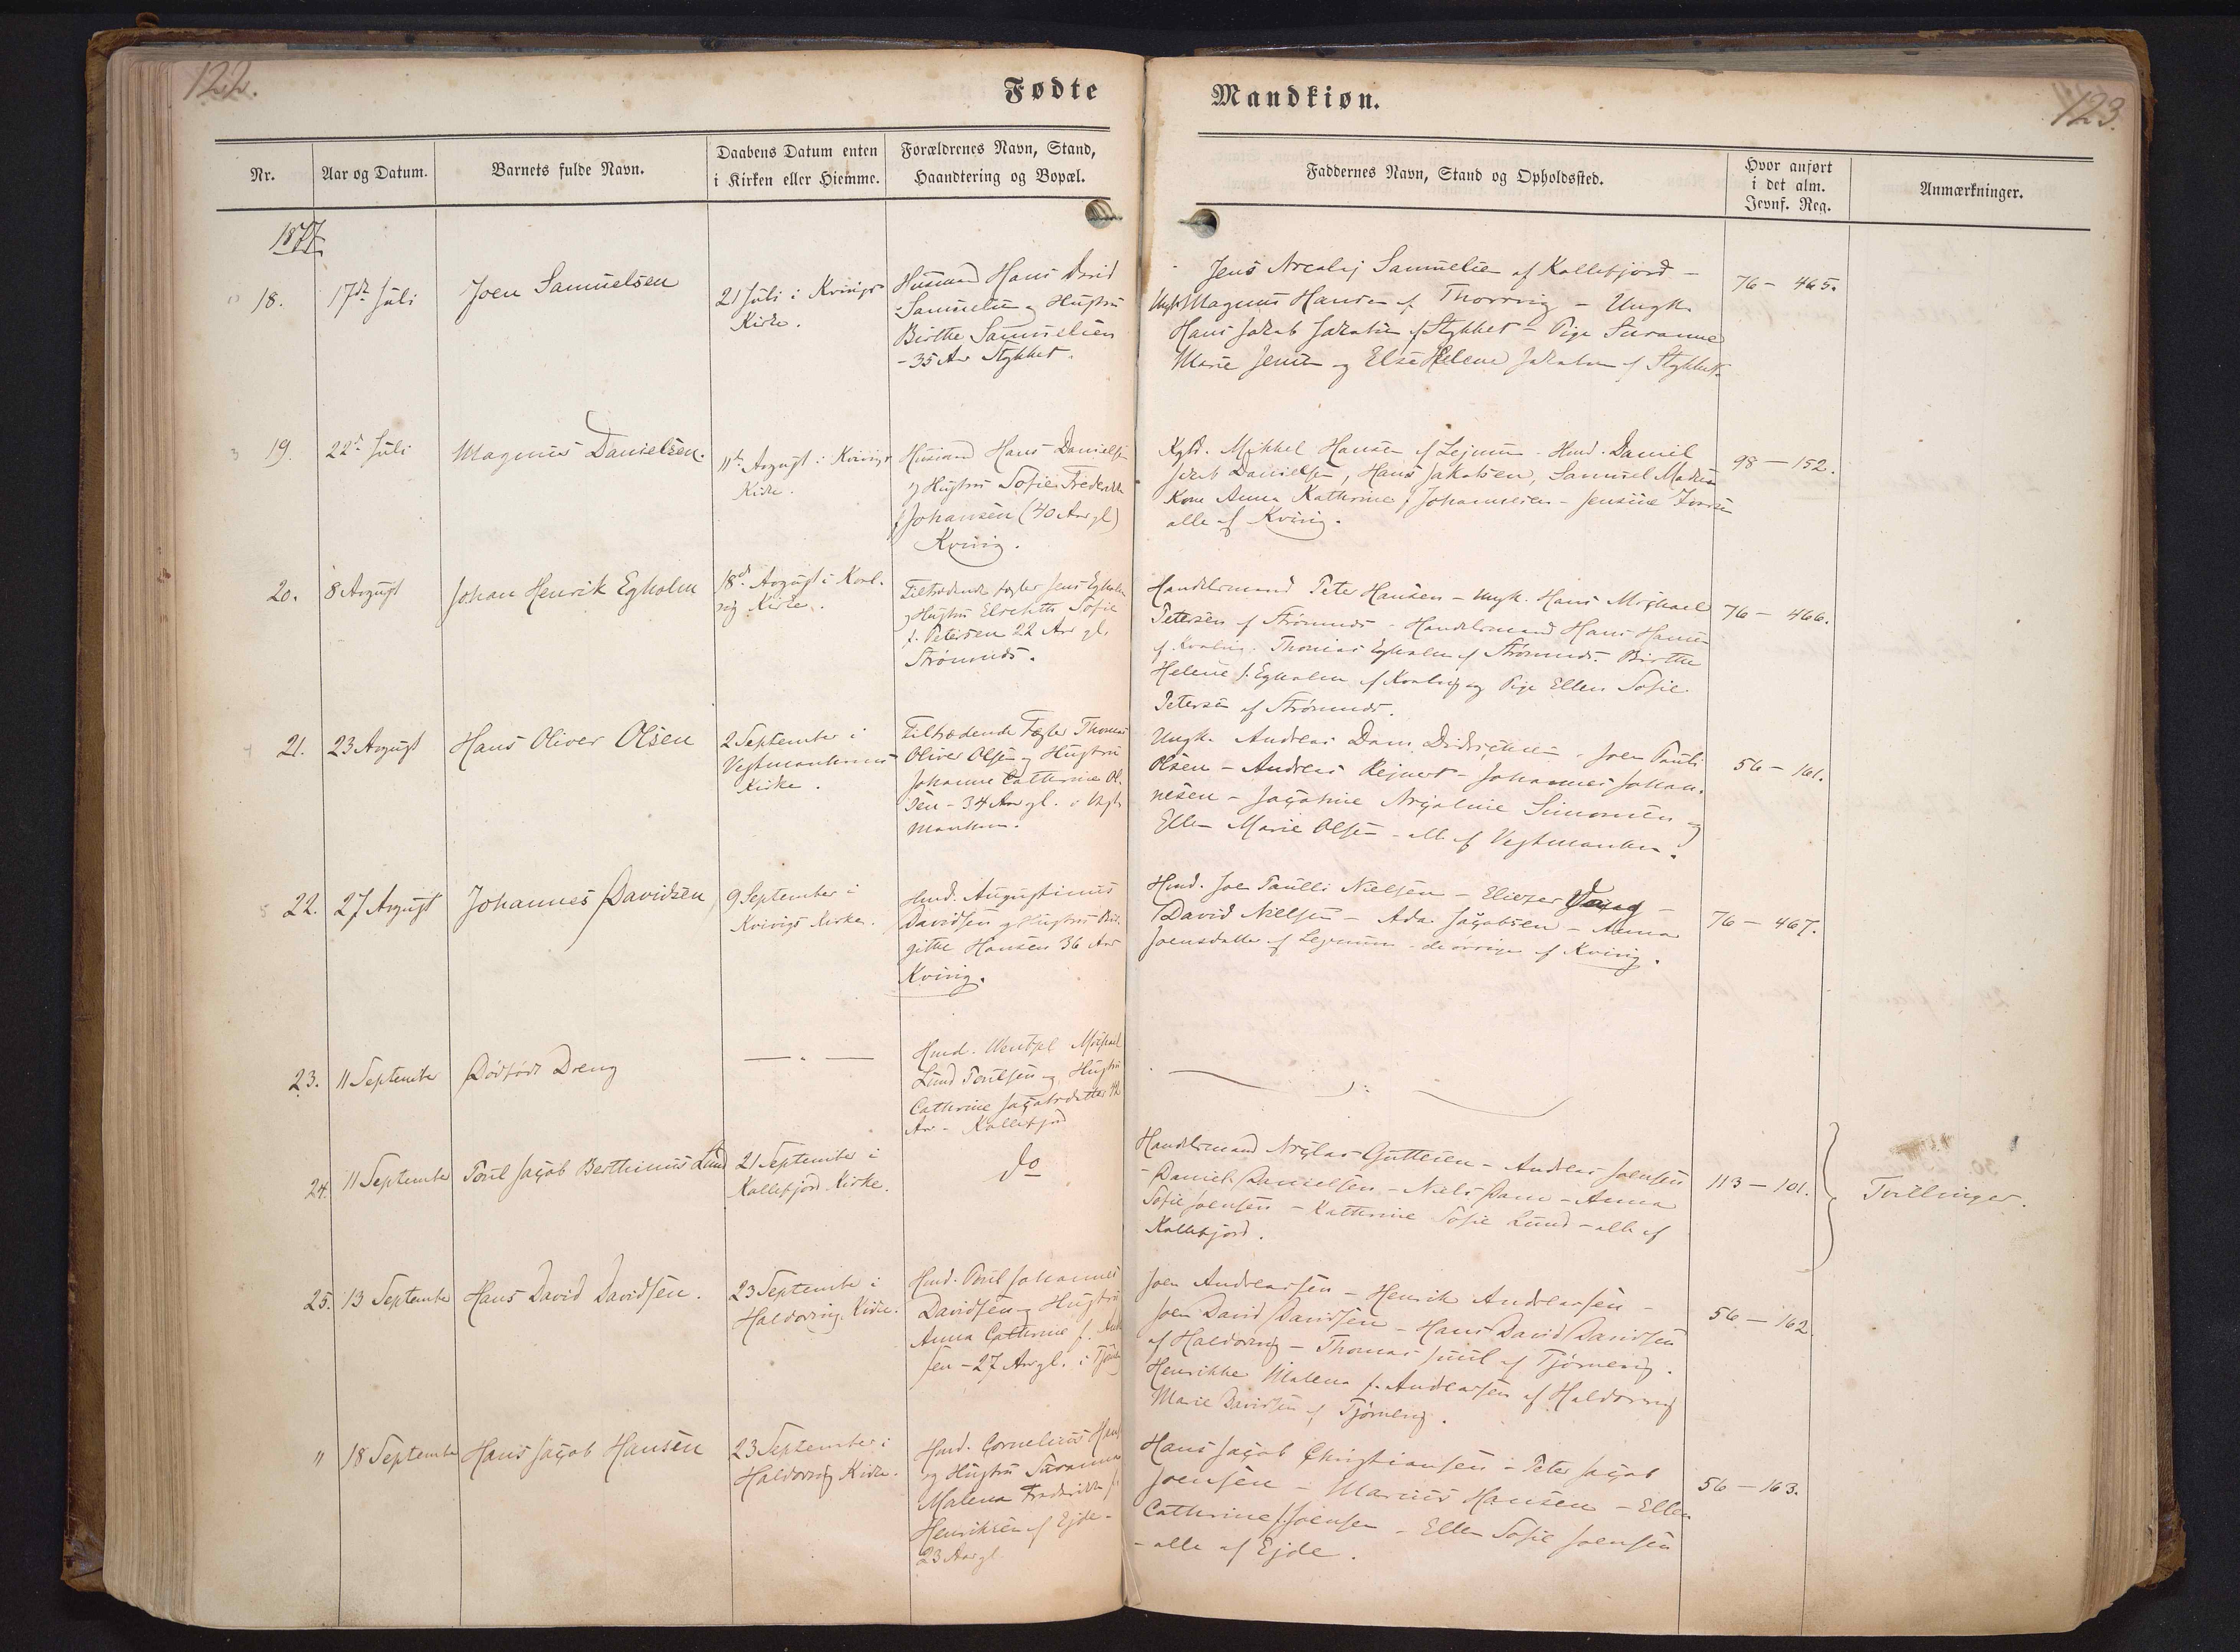 122.
Fødte
Mandkiøn.
123.
Nr.
Aar og Datum.
Barnets fulde Navn.
Daabens Datum enten
i Kirken eller Hiemme.
Forældrenes Navn, Stand,
Haandtering og Bopæl.
Faddernes Navn, Stand og Opholdssted.
Hvor anført
i det alm.
Jevnf. Reg.
Anmærkninger.
1877
18.
17de Juli
Joen Samuelsen
21 Juli i Kvivigs
Kirke.
Husmand Hans David
Samuelsen og Hustru
Birthe Samuelsen
- 35 Aar Stykket.
Jens Nicolaj Samuelsen af Kollefjord -
Ungk. Magnus Hansen af Thorsvig - Ungk.
Hans Jakob Jakobsen af Stykket - Pige Susanne
Marie Jensen og Else Helene Jakobsen af Stykket.
76 - 465.
19.
22de Juli
Magnus Danielsen.
11te August i Kvivigs
Kirke.
Husmand Hans Danielsen
og Hustru Sofie Frederikke
f. Johansen (40 Aar gl)
Kvivig.
Mikkel Hansen af Lejnum - Hmd. Daniel
Jakob Danielsen, Hans Jakobsen, Samuel
Kone Anna Kathrine f. Johannesen - Jensine
alle af Kvivig.
98 - 152.
20.
8 August
Johan Henrik Egholm
18de August i Kval-
vig Kirke.
Tiltrædende Fæster Jens Egholm
og Hustru Elsebeth Sofie
f. Petersen 22 Aar gl.
Strømnæs.
Handelsmand Peter Hansen - Ungk. Hans Michael
Petersen af Strømnæs - Handelsmand Hans Hansen
af Kvalvig. Thomas Egholm af Strømnæs. Birthe
Helene f. Egholm af Kvalvig og Pige Ellen Sofie
Petersen af Strømnæs.
76 - 466.
21.
23 August
Hans Oliver Olsen
2 September i
Vestmanhavns
Kirke.
Tiltrædende Fæster Thomas
Oliver Olsen og Hustru
Johanne Cathrine Ol-
sen - 34 Aar gl. i Vest-
manhavn.
Ungk. Andreas Dam Didriksen - Joen Pauli
Olsen - Andreas Rejnert - Johannes Johan-
nesen - Jacobine Nicoline Simonsen og
Ellen Marie Olsen - alle af Vestmanhavn.
56 - 161.
22.
27 August
Johannes Davidsen
9 September i
Kvivigs Kirke.
Hmd. Augustinus
Davidsen og Hustru Bir-
gitte Hansen 36 Aar
Kvivig.
Hmd. Joen Paulli Nielsen - Eliezer -
David Nielsen - Ada Jacobsen - Anna
Joensdatter af Lejnum - de øvrige af Kvivig.
76 - 467.
23.
11 September
Dødfødt Dreng
— " —
Hmd. Wentzel Michael
Lund Poulsen og Hustru
Cathrine Jacobsdatter 42
Aar - Kollefjord
24.
11 September
Poul Jacob Berthinus Lund
21 September i
Kollefjord Kirke.
do
Handelsmand Nicolas Guttesen - Andreas Joensen
- Daniel Danielsen - Niels Dam - Anna
Sofie Joensen - Kathrine Sofie Lund - alle af
Kollefjord.
113 - 101.
Tvillinger.
25.
13 September
Hans David Davidsen.
23 September i
Haldorsvig Kirke.
Hmd. Poul Johannes
Davidsen og Hustru
Anna Cathrine f.
sen - 27 Aar gl. i
Joen Andreassen - Henrik Andreassen -
Joen David Davidsen - Hans David Davidsen
af Haldorsvig - Thomas Juul af Tjørnevig.
Henrikke Malena f. Andreassen af Haldorsvig
Marie Davidsen af Tjørnevig.
56 - 162.
"
18 September
Hans Jacob Hansen
23 September i
Haldorsvig Kirke.
Hmd. Cornelius
og Hustru Susanne
Malena Frederikke f.
Henriksen af Ejde -
23 Aar gl
Hans Jacob Christiansen - Peter Jacob
Joensen - Marius Hansen - Ellen
Cathrine f. Joensen - Ellen Sofie Joensen
- alle af Ejde.
56 - 163.